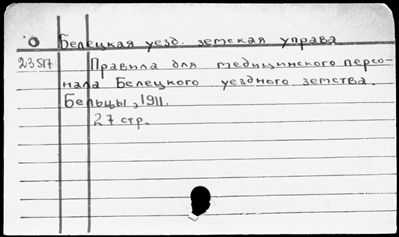 О Белецкая уезд. земская управа
23517 Правила для медицинского персо-
нала Белецкого уездного земства.
Бельцы, 1911.
27 стр.